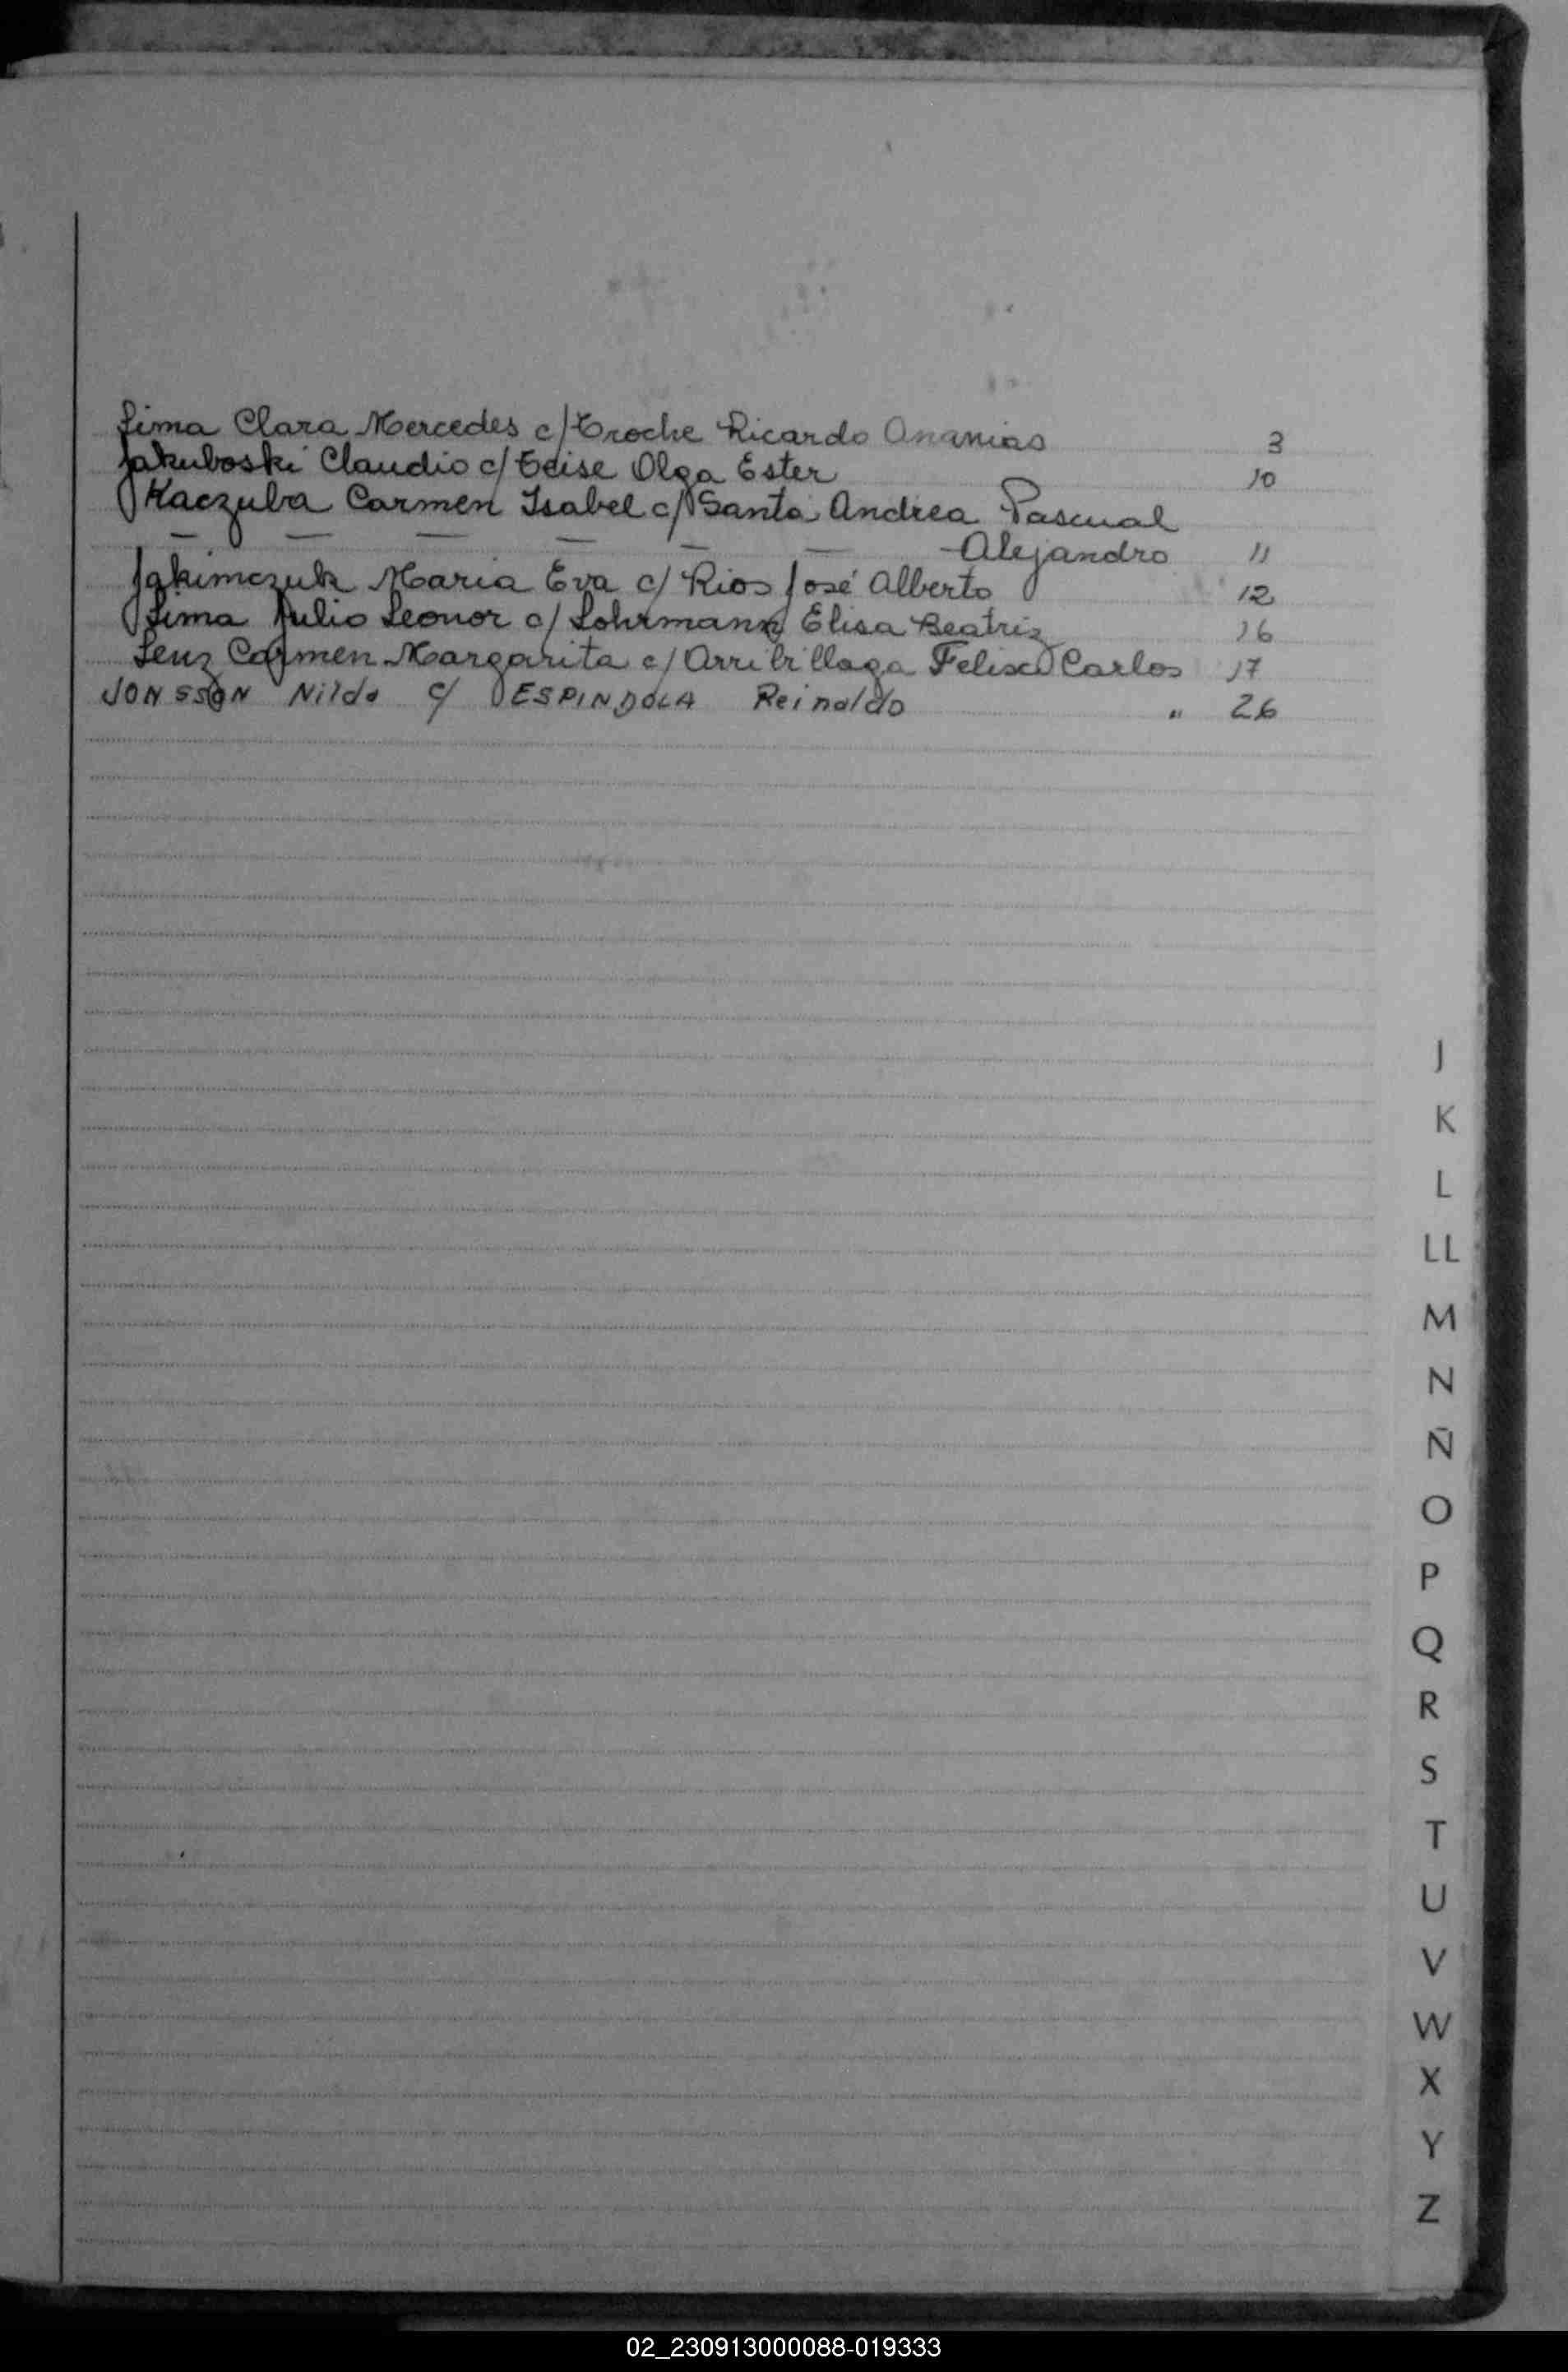 Lima Clara Mercedes c/ Troche Ricardo Ananias 3
Jakuboski Claudio c/ Geise Olga Ester 10
Kaczuba Carmen Isabel c/ Santa Andrea Pascual
— — — — — — Alejandro 11
Jakimczuk Maria Eva c/ Rios José Alberto 12
Lima Julio Leonor c/ Lohrmann Elisa Beatriz 16
Lenz Carmen Margarita c/ Arribillaga Felix Carlos 17
JONSSON Nilda c/ ESPINDOLA Reinaldo " 26
J
K
L
LL
M
N
Ñ
O
P
Q
R
S
T
U
V
W
X
Y
Z
02_230913000088-019333